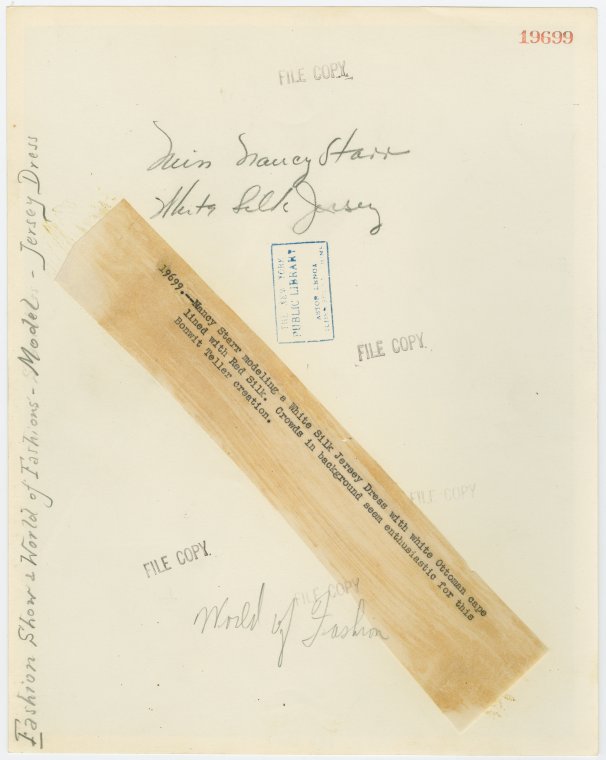 19699
FILE COPY
Miss Nancy Starr
White Silk Jersey
THE NEW YORK
PUBLIC LIBRARY
ASTOR LENOX
FILE COPY
19699.—Nancy Starr modeling a White Silk Jersey Dress with white Ottoman cape
lined with Red Silk. Crowds in background seem enthusiastic for this
Bonwit Teller creation.
FILE COPY
FILE COPY
FILE COPY
World of Fashion
Fashion Show & World of Fashions - Models - Jersey Dress